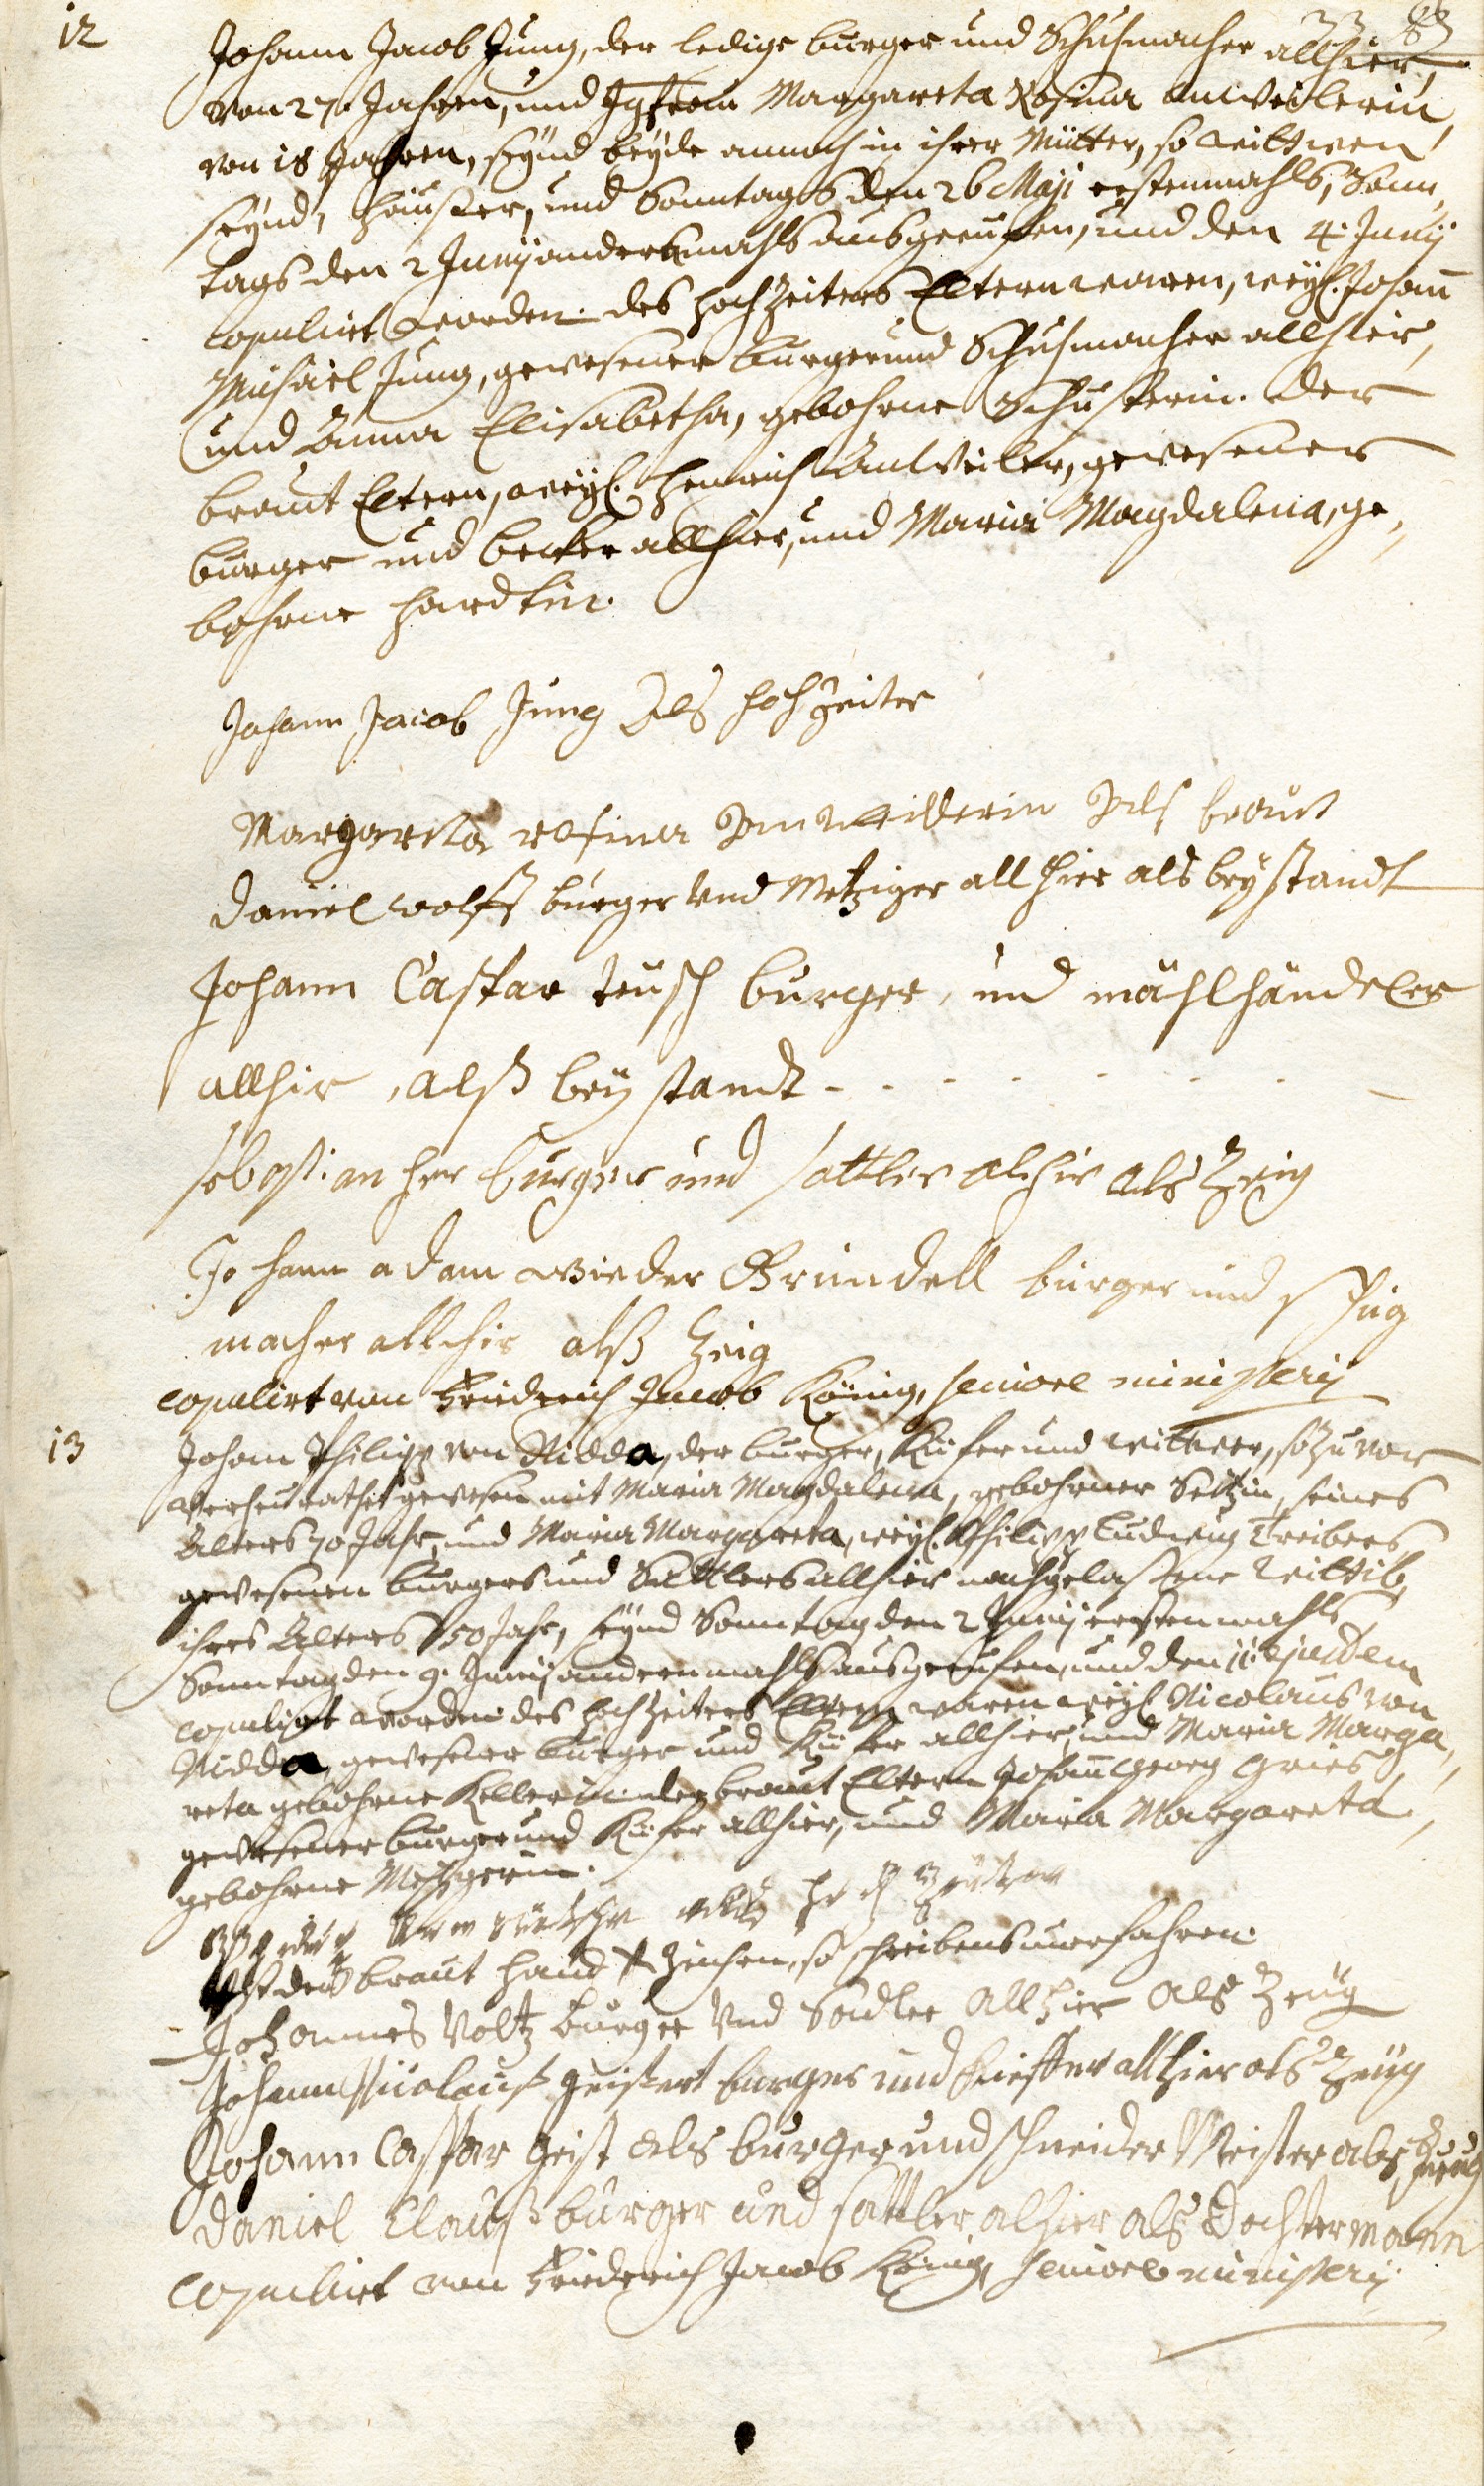 12
Johann Jacob Jung, der ledige burger und Schuhmacher allhier,
von 27. Jahren, und Jgfrau Margareta Rosina Anweilerin,
von 18 Jahren, seynd beyde annoch in ihrer Mütter, so wittwen
seynd, häußer, und Sonntags den 26 Maji erstenmahls, Sonn-
tags den 2 Junij andermahls ausgeruffen, und den 4. Junij
copulirt worden. des hochzeiters Eltern waren, weyl. Johann
Michael Jung, gewesener burger und Schuhmacher allhier,
und Anna Elisabetha, gebohrne Schusterin. der
braut Eltern, weyl. Henrich Anweiler, gewesener
burger und becker allhier, und Maria Magdalena, ge-
bohrne
Johann Jacob Jung Als hochzeiter
Margareta rosina Anweillerin Als braut
Daniel wolff burger Und Metziger all hier als beystandt
Johann Caspar Teusch burger, und mählhändeler
allhir, alß bey standt
burger und sattler alhir als Zeig
Johann adam wieder Gründell burger und schug
macher allehir alß Zeig
copulirt von Friedrich Jacob König, seniore ministerij
13
Johann Philipp von Nidda, der burger, Küfer und wittwer, so zuvor
verheurathet gewesen mit Maria Magdalena, gebohrner Seitzin, seines
Alters 70 Jahr, und Maria Margareta, weyl. Philipp Ludwig Treibers,
gewesenen burgers und Sattlers allhier nachgelaßene Wittib,
ihres Alters 50 Jahr, seynd Sonntag den 2 Junij erstenmahls,
Sonntag den 9. Junij andernmahls ausgeruffen, und den 11. ejusdem
copulirt worden. des hochzeiters Eltern waren weyl. Nicolaus von
Nidda, gewesener burger und Küfer allhier, und Maria Marga-
reta gebohrne Kellerin. der braut Eltern Johann Georg Gries,
gewesener burger und Küfer allhier, und Maria Margareta,
gebohrne Metzgerin.
der braut hand Zeichen, so schreibens unerfahren.
Johannes Voltz burger Und Sadler All hier Als Zeug
Johann Nicolauß geißert burger und kieffer all hier als Zeug
Johann Caspar Geist als burger und schneider Meister als Zeug
Daniel Clauß burger und sattler alhier als Dochtermann
copulirt von Friedrich Jacob König, seniore ministerij.